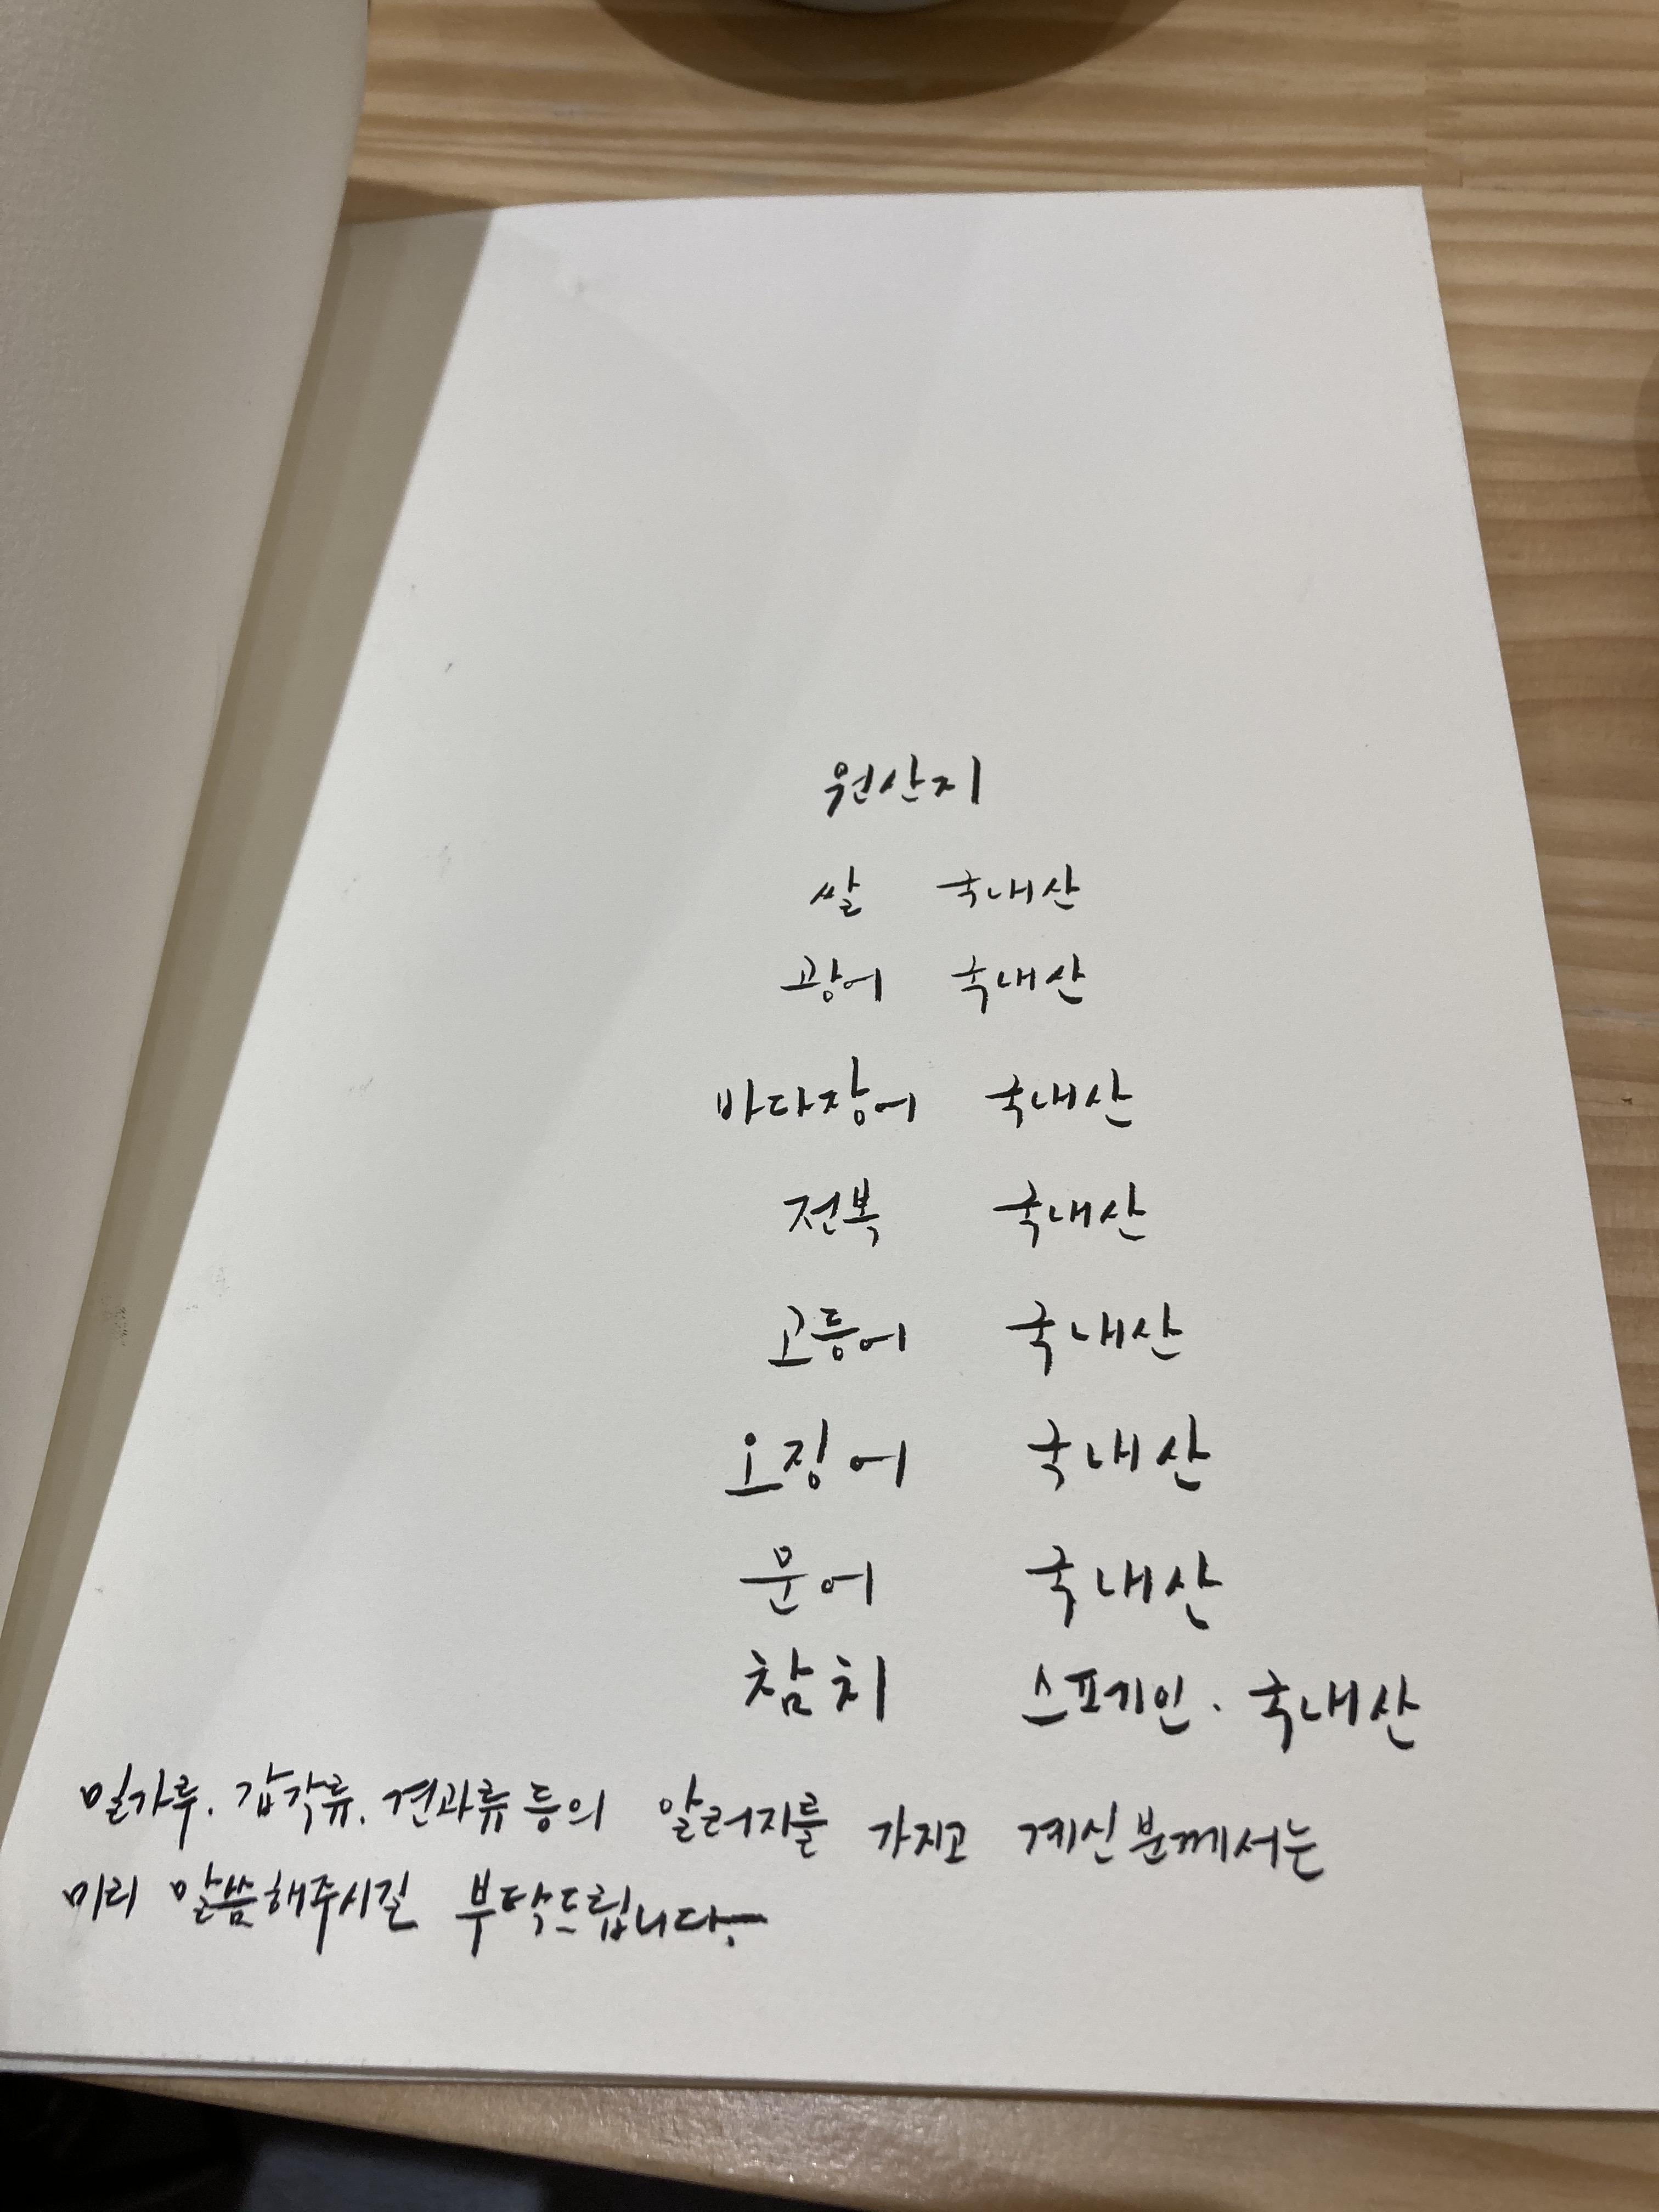 원산지
쌀 국내산
광어 국내산
바다장어 국내산
전복 국내산
고등어 국내산
오징어 국내산
문어 국내산
참치 스페인. 국내산
밀가루. 갑각류. 견과류 등의 알러지를 가지고 계신분께서는
미리 말씀해주시길 부탁드립니다.